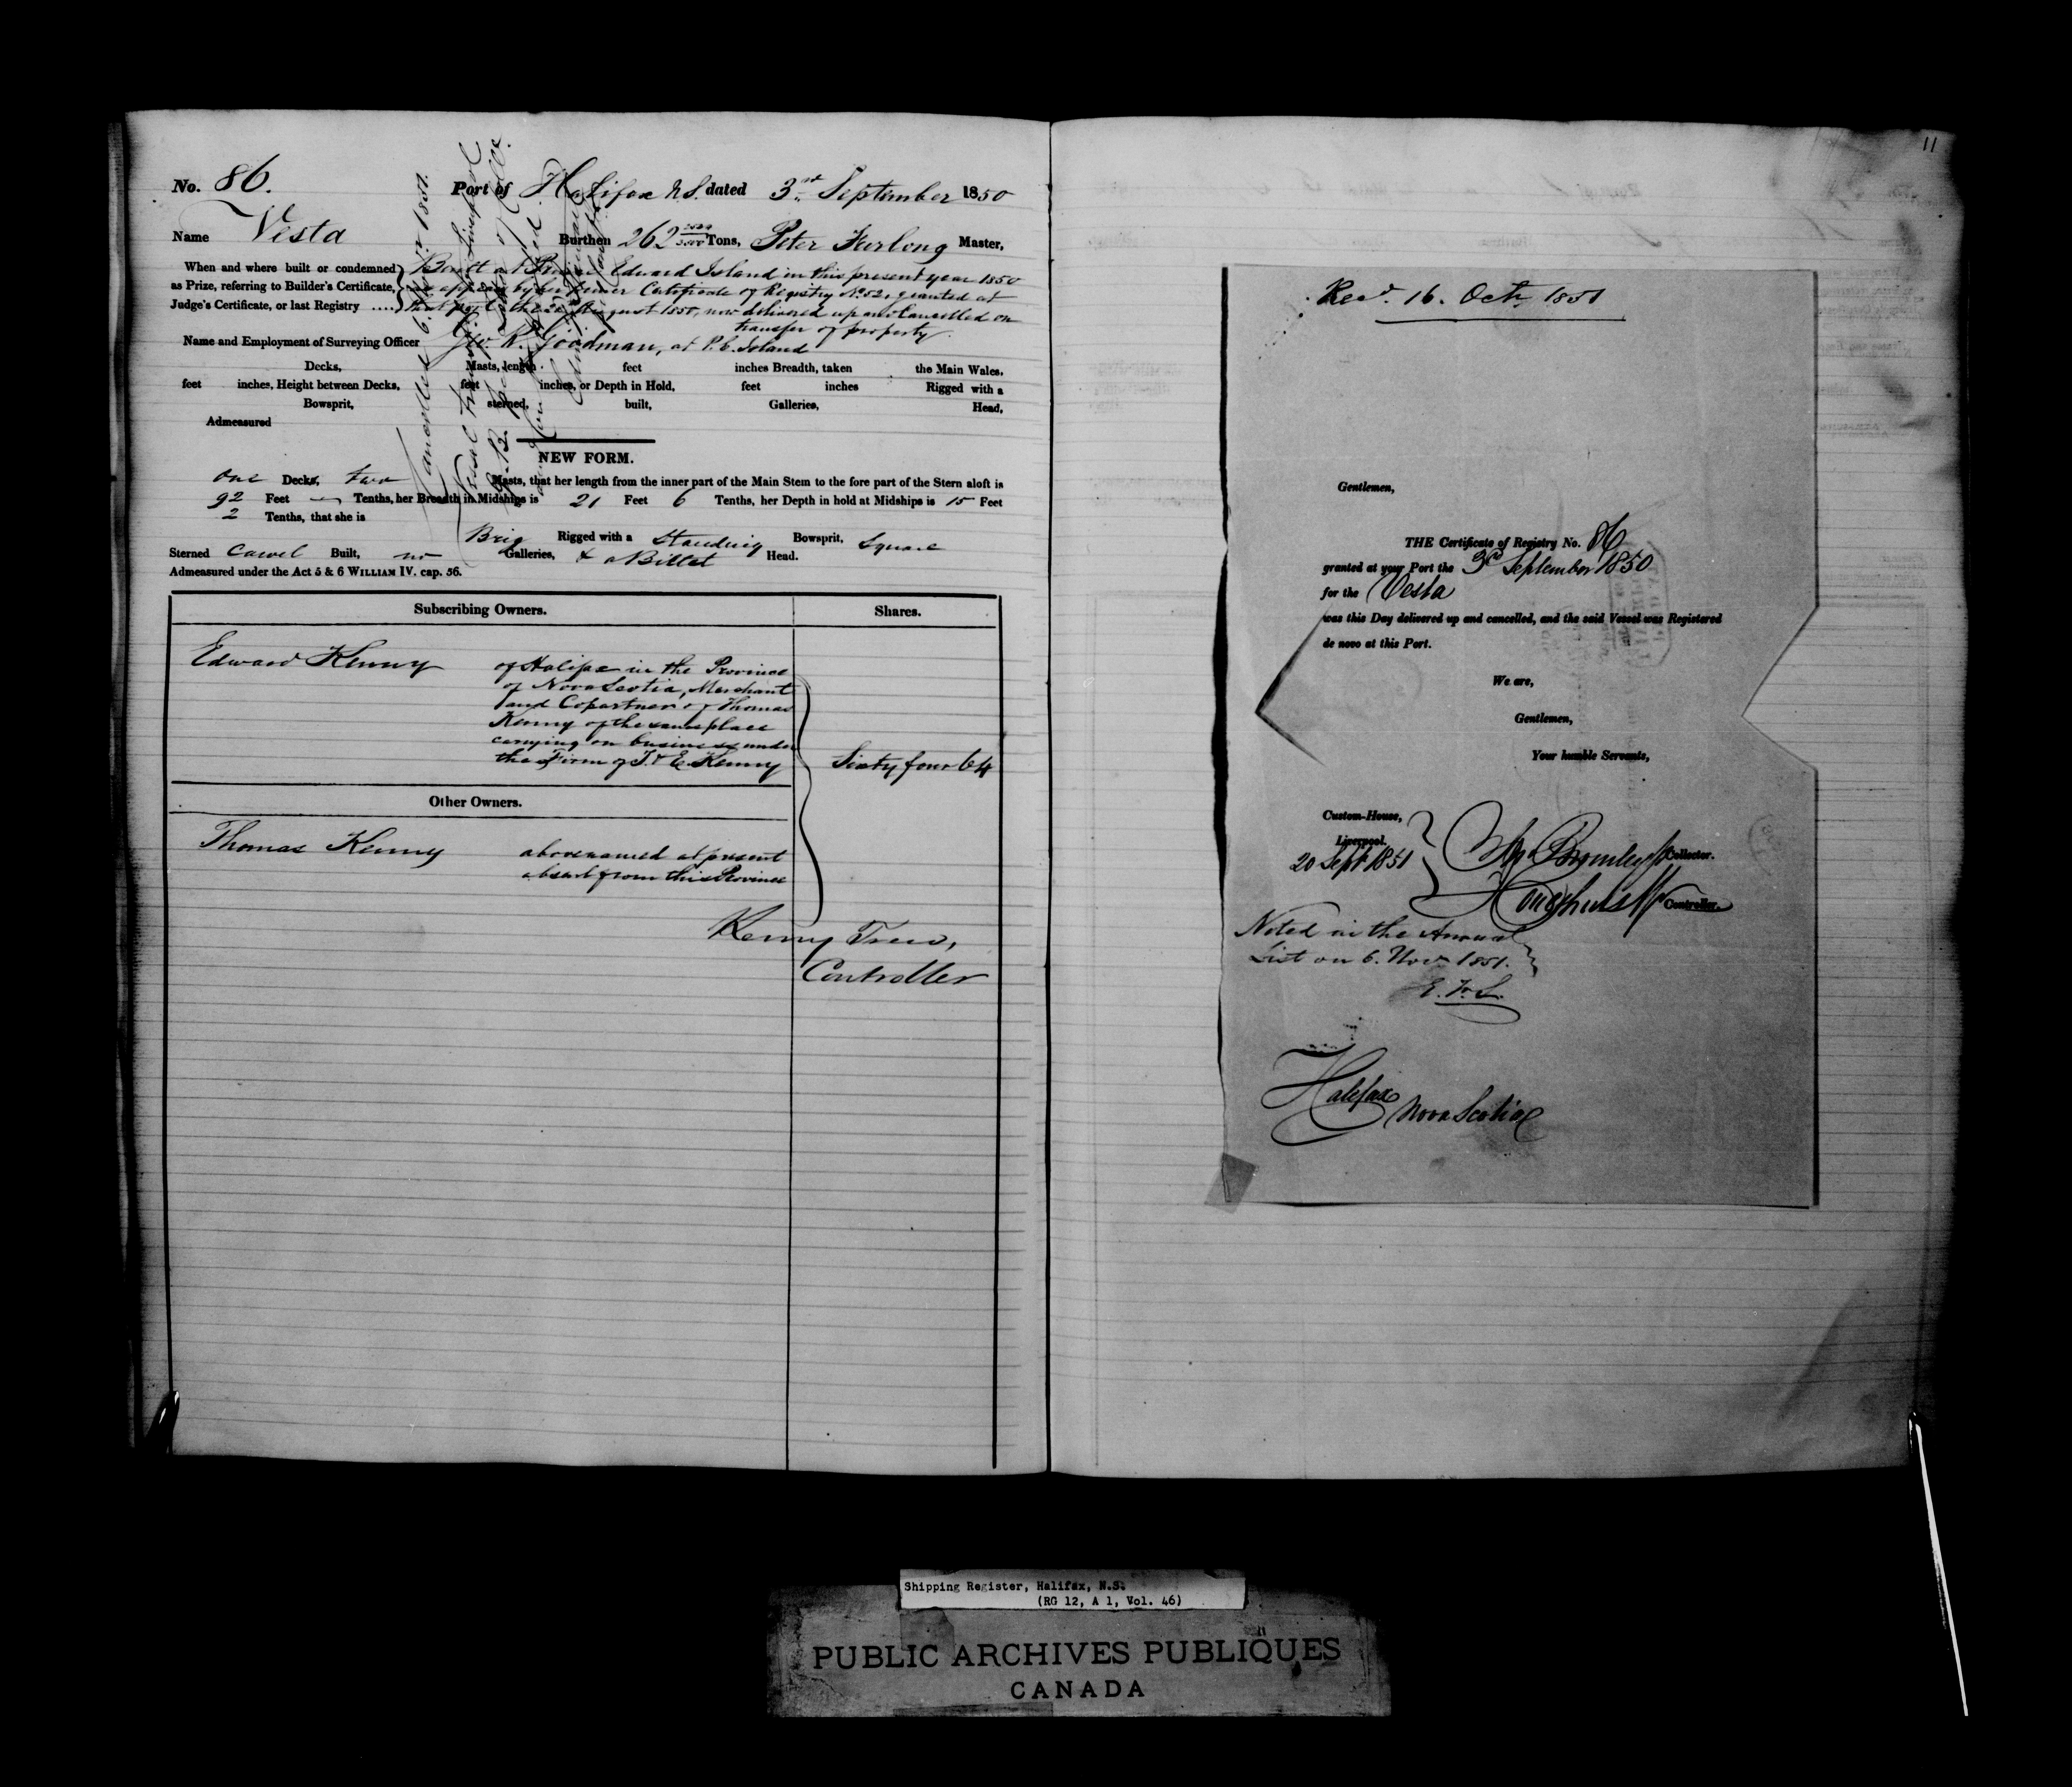 No. 86. Port of Halifax N.S. dated 3rd September 1850
Name Vesta Burthen 262 Tons, Peter Furlong Master,
When and where built or condemned as Prize, referring to Builder's Certificate, Judge's Certificate, or last Registry ....
Built at Prince Edward Island in this present year 1850
as appears by her former Certificate of Registry No. 52, granted at
that port the August 1850, now delivered up and Cancelled on
transfer of property.
Name and Employment of Surveying Officer Geo. R. Goodman, at P. E. Island
Decks, Masts, length feet inches Breadth, taken the Main Wales,
feet inches, Height between Decks, feet inches, or Depth in Hold, feet inches Rigged with a
Bowsprit, sterned, built, Galleries, Head,
Admeasured
Cancelled 6. Novr. 1851.
NEW FORM.
one Decks, two Masts, that her length from the inner part of the Main Stem to the fore part of the Stern aloft is
92 Feet — Tenths, her Breadth in Midships is 21 Feet 6 Tenths, her Depth in hold at Midships is 15 Feet
2 Tenths, that she is
Brig Rigged with a Standing Bowsprit, Square
Sterned Carvel Built, no Galleries, & a Billet Head.
Admeasured under the Act 5 & 6 WILLIAM IV. cap. 56.
Subscribing Owners. Shares.
Edward Kenny of Halifax in the Province
of Nova Scotia, Merchant
and Copartner of Thomas
Kenny of the same place
carrying on business under
the Firm of T. & E. Kenny Sixty four 64
Other Owners.
Thomas Kenny abovenamed at present
absent from this Province
Controller
11
Recd. 16. Octr. 1851
Gentlemen,
THE Certificate of Registry No. 86
granted at your Port the 3rd September 1850
for the Vesta
was this Day delivered up and cancelled, and the said Vessel was Registered
de novo at this Port.
We are,
Gentlemen,
Your humble Servants,
Custom-House,
Liverpool.
20 Sept 1851
Collector.
Controller.
Noted in the Annual
List on 6. Novr 1851.
Halifax
Nova Scotia
Shipping Register, Halifax, N.S.
(RG 12, A 1, Vol. 46)
PUBLIC ARCHIVES PUBLIQUES
CANADA